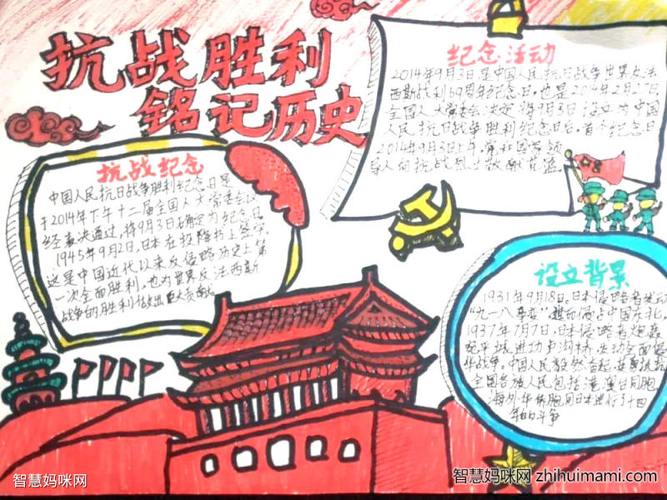 抗战胜利
铭记历史
纪念活动
2014年9月3日是中国人民抗日战争世界反法
西斯战利69周年纪念日,也是2014年2月27日
全国人大常委会决定将9月3日设立为中国
人民抗日战争胜利纪念日后,首个纪念日
2014年9月3日上午,
导人向抗战烈士敬献花篮
抗战纪念
中国人民抗日战争胜利纪念日是
于2014年下午十二届全国人大常委会议
经表决通过,将9月3日确定为纪念日
1945年9月2日,日本在投降书上签字
这是中国近代以来反侵略历史上第
一次全面胜利,也为世界反法西斯
战争的胜利做出巨大贡献
设立背景
1931年9月18日,日本侵略者发动
"九一八事变",中国东北。
1937年7月7日,日本侵略者炮轰
宛平城进动全面侵
华战争。中国人民毅然奋起,
全国各族人民包括港澳台同胞
海外华侨胞同日本进行了十四
年的斗争
智慧妈咪网
智慧妈咪网 zhihuimami.com